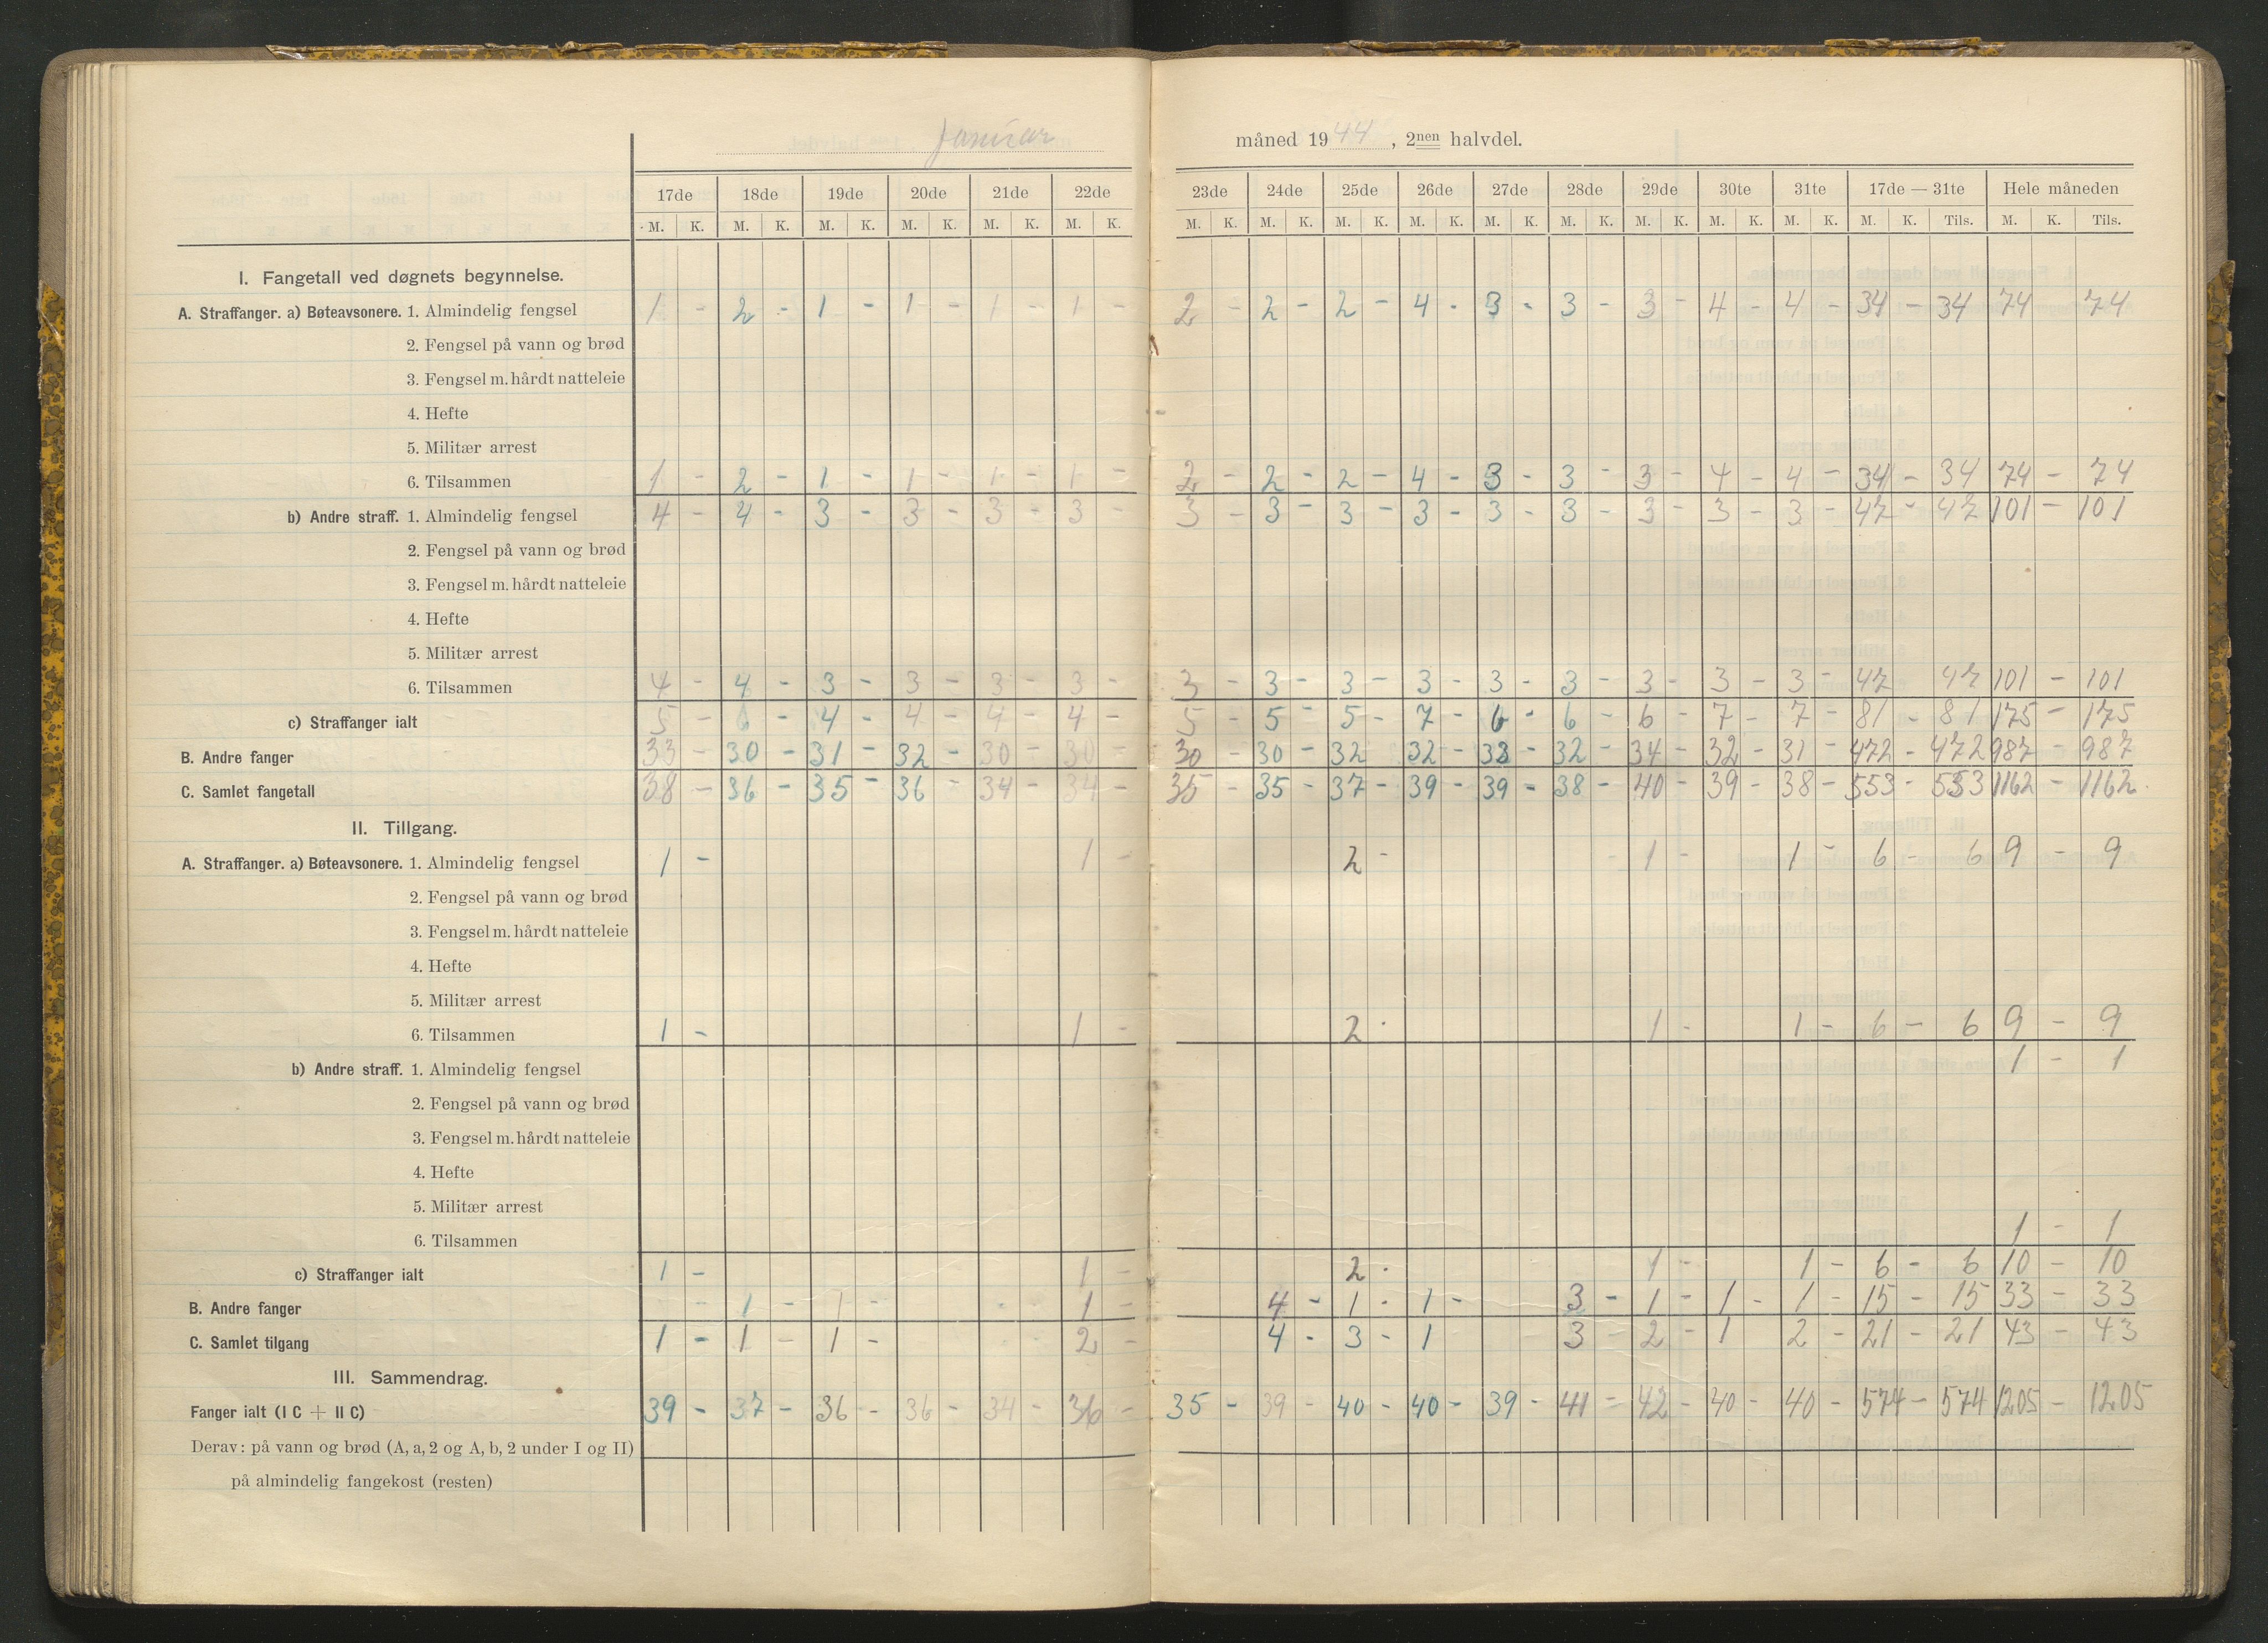 Januar måned 1944, 2nen halvdel.
17de 18de 19de 20de 21de 22de 23de 24de 25de 26de 27de 28de 29de 30te 31te 17de — 31te Hele måneden
M. K. M. K. M. K. M. K. M. K. M. K. M. K. M. K. M. K. M. K. M. K. M. K. M. K. M. K. M. K. M. K. Tils. M. K. Tils.
I. Fangetall ved døgnets begynnelse.
A. Straffanger. a) Bøteavsonere. 1. Almindelig fengsel 1 - 2 - 1 - 1 - 1 - 1 - 2 - 2 - 2 - 4 - 3 - 3 - 3 - 4 - 4 - 34 - 34 74 74
2. Fengsel på vann og brød
3. Fengsel m. hårdt natteleie
4. Hefte
5. Militær arrest
6. Tilsammen 1 - 2 - 1 - 1 - 1 - 1 - 2 - 2 - 2 - 4 - 3 - 3 - 3 - 4 - 4 - 34 - 34 74 - 74
b) Andre straff. 1. Almindelig fengsel 4 - 4 - 3 - 3 - 3 - 3 - 3 - 3 - 3 - 3 - 3 - 3 - 3 - 3 - 3 - 47 - 47 101 - 101
2. Fengsel på vann og brød
3. Fengsel m. hårdt natteleie
4. Hefte
5. Militær arrest
6. Tilsammen 4 - 4 - 3 - 3 - 3 - 3 - 3 - 3 - 3 - 3 - 3 - 3 - 3 - 3 - 3 - 47 47 101 - 101
c) Straffanger ialt 5 - 6 - 4 - 4 - 4 - 4 - 5 - 5 - 5 - 7 - 6 - 6 - 6 - 7 - 7 - 81 - 81 175 - 175
B. Andre fanger 33 - 30 - 31 - 32 - 30 - 30 - 30 - 30 - 32 - 32 - 33 - 32 - 34 - 32 - 31 - 472 - 472 987 - 987
C. Samlet fangetall 38 - 36 - 35 - 36 - 34 - 34 - 35 - 35 - 37 - 39 - 39 - 38 - 40 - 39 - 38 - 553 - 553 1162 - 1162
II. Tillgang.
A. Straffanger. a) Bøteavsonere. 1. Almindelig fengsel 1 - 1 - 2 - 1 - 1 - 6 - 6 9 - 9
2. Fengsel på vann og brød
3. Fengsel m. hårdt natteleie
4. Hefte
5. Militær arrest
6. Tilsammen 1 - 1 - 2 - 1 - 1 - 6 - 6 9 - 9
b) Andre straff. 1. Almindelig fengsel 1 - 1
2. Fengsel på vann og brød
3. Fengsel m. hårdt natteleie
4. Hefte
5. Militær arrest
6. Tilsammen 1 - 1
c) Straffanger ialt 1 - 1 - 2 - 1 - 1 - 6 - 6 10 - 10
B. Andre fanger - 1 - 1 - 1 - 4 - 1 - 1 - 3 - 1 - 1 - 1 - 15 - 15 33 - 33
C. Samlet tilgang 1 - 1 - 1 - 2 - 4 - 3 - 1 3 - 2 - 1 2 - 21 - 21 43 - 43
III. Sammendrag.
Fanger ialt (I C + II C) 39 - 37 - 36 - 36 - 34 - 36 - 35 - 39 - 40 - 40 - 39 - 41 - 42 - 40 - 40 - 574 - 574 1205 - 1205
Derav: på vann og brød (A, a, 2 og A, b, 2 under I og II)
på almindelig fangekost (resten)